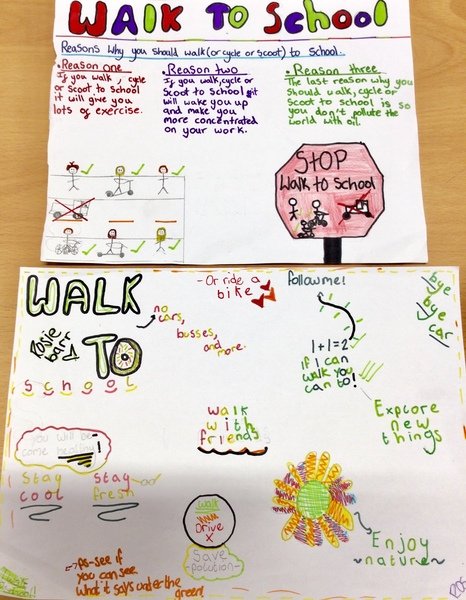 WALK TO SCHOOL
Reasons why you should walk (or cycle or scoot) to School.
• Reason one
If you walk, cycle
or scoot to school
it will give you
lots of exercise.
• Reason two
If you walk, cycle or
scoot to school it
will wake you up
and make you
more concentrated
on your work.
• Reason three
The last reason why you
should walk, cycle or
scoot to school is so
you don't pollute the
world with oil.
STOP
Walk to School
WALK
TO
School
Rosie
barr
no
cars,
busses,
and
more.
-Or ride a
bike
follow me!
bye
bye
car
1+1=2
if I can
walk you
can to!
Explore
new
things
walk
with
friends
you will be
come healthy!
Stay
cool
Stay
fresh
walk
Drive
X
Save
-polution-
Enjoy
~nature~
ps-see if
you can see
what it says under the
green!